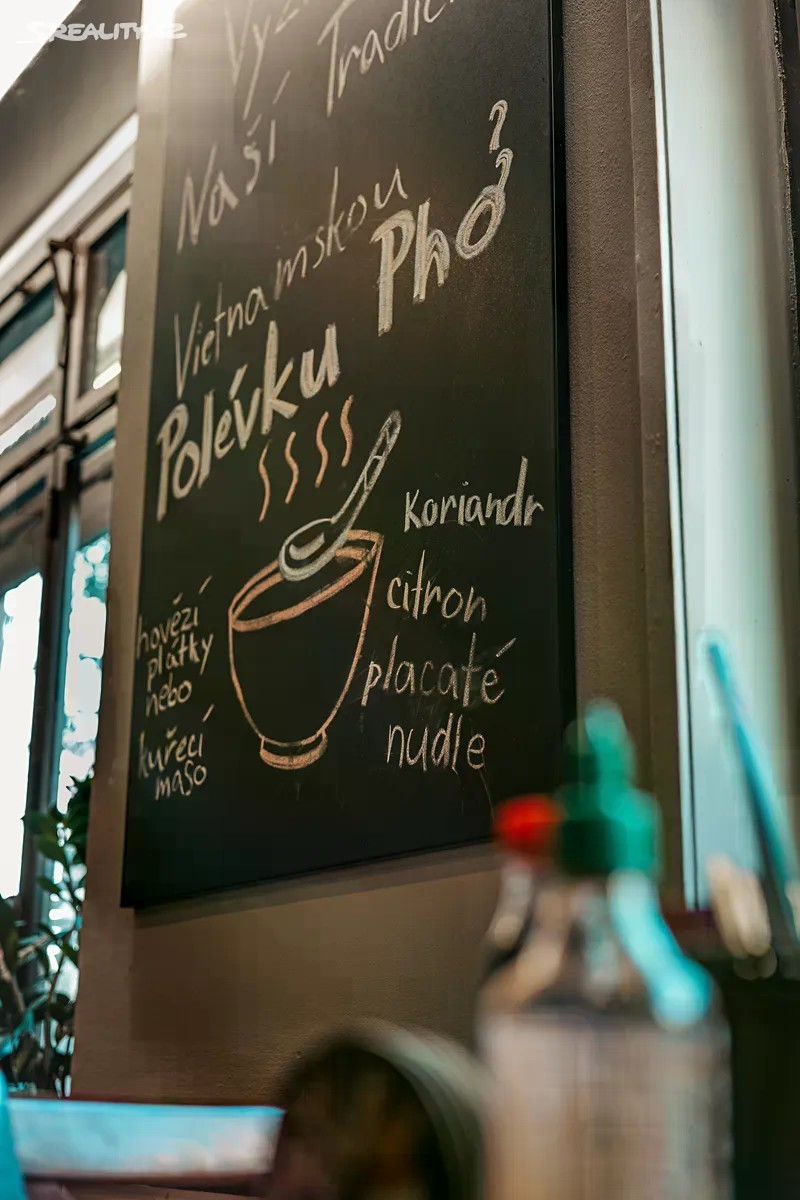 SREALITY.CZ
Naší
Vietnamskou
Polévku Phở
Koriandr
citron
placaté
nudle
hovězí
plátky
nebo
kuřecí
maso